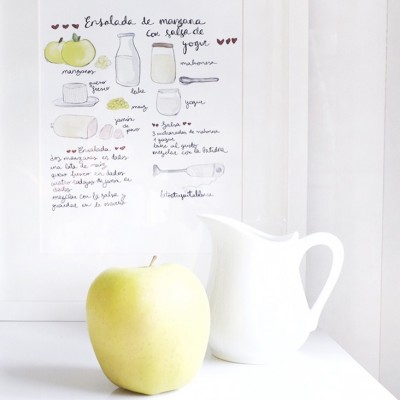 Ensalada de manzana
con salsa de
yogue
manzanas
mahonesa
queso
fresco
leche
maíz
yogue
jamón
de
pavo
Salsa
3 cucharadas de mahonesa
1 yogue
leche al gusto
mezclar con la batidora
Ensalada
Dos manzanas en dados
una lata de maíz
queso fresco en dados
cuatro de jamón en
dados
mezclar con la salsa y
guardar en la nevera